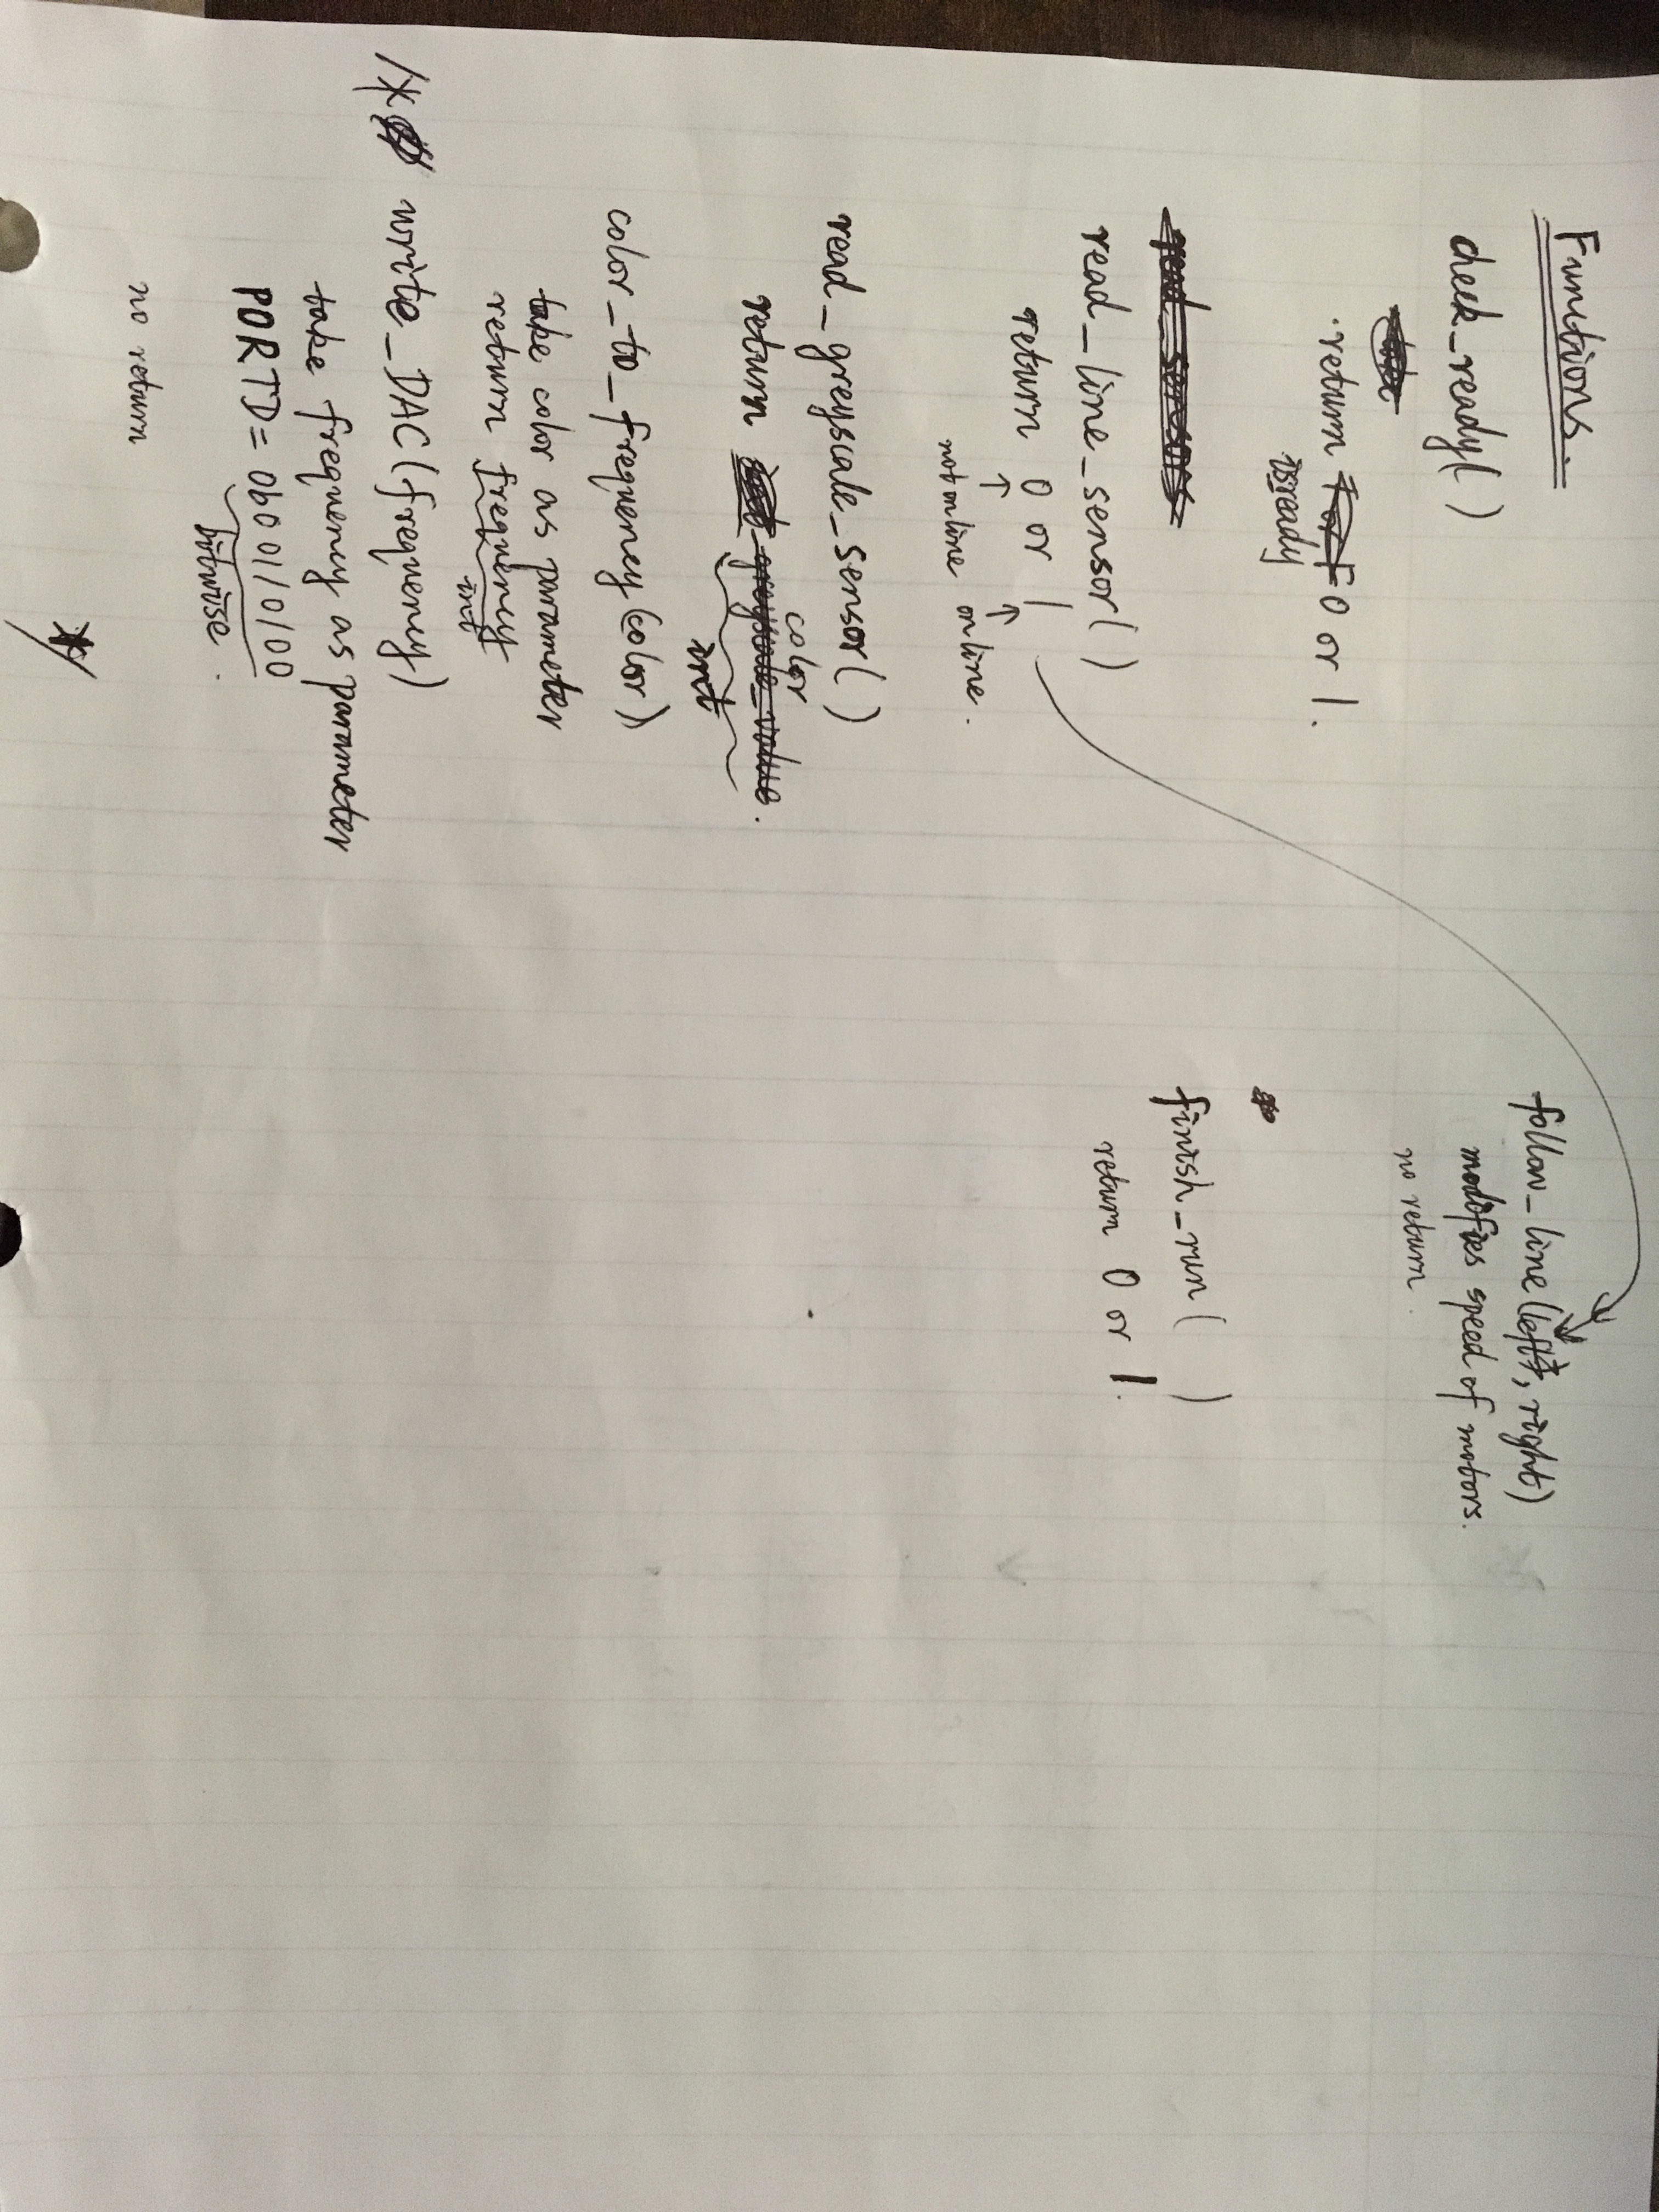 Functions.
check_ready()
· return 0 or 1.
isready
read_line_sensor()
return 0 or 1
↑ ↑
not on line on line.
read_greyscale_sensor()
color
return greyscale_value.
int
color_to_frequency(color)
take color as parameter
return frequency
int
/* write_DAC(frequency)
take frequency as parameter
PORTD = 0b00110100
bitwise.
no return
*/
follow_line(left, right)
modifies speed of motors.
no return.
finish_run( )
return 0 or 1.